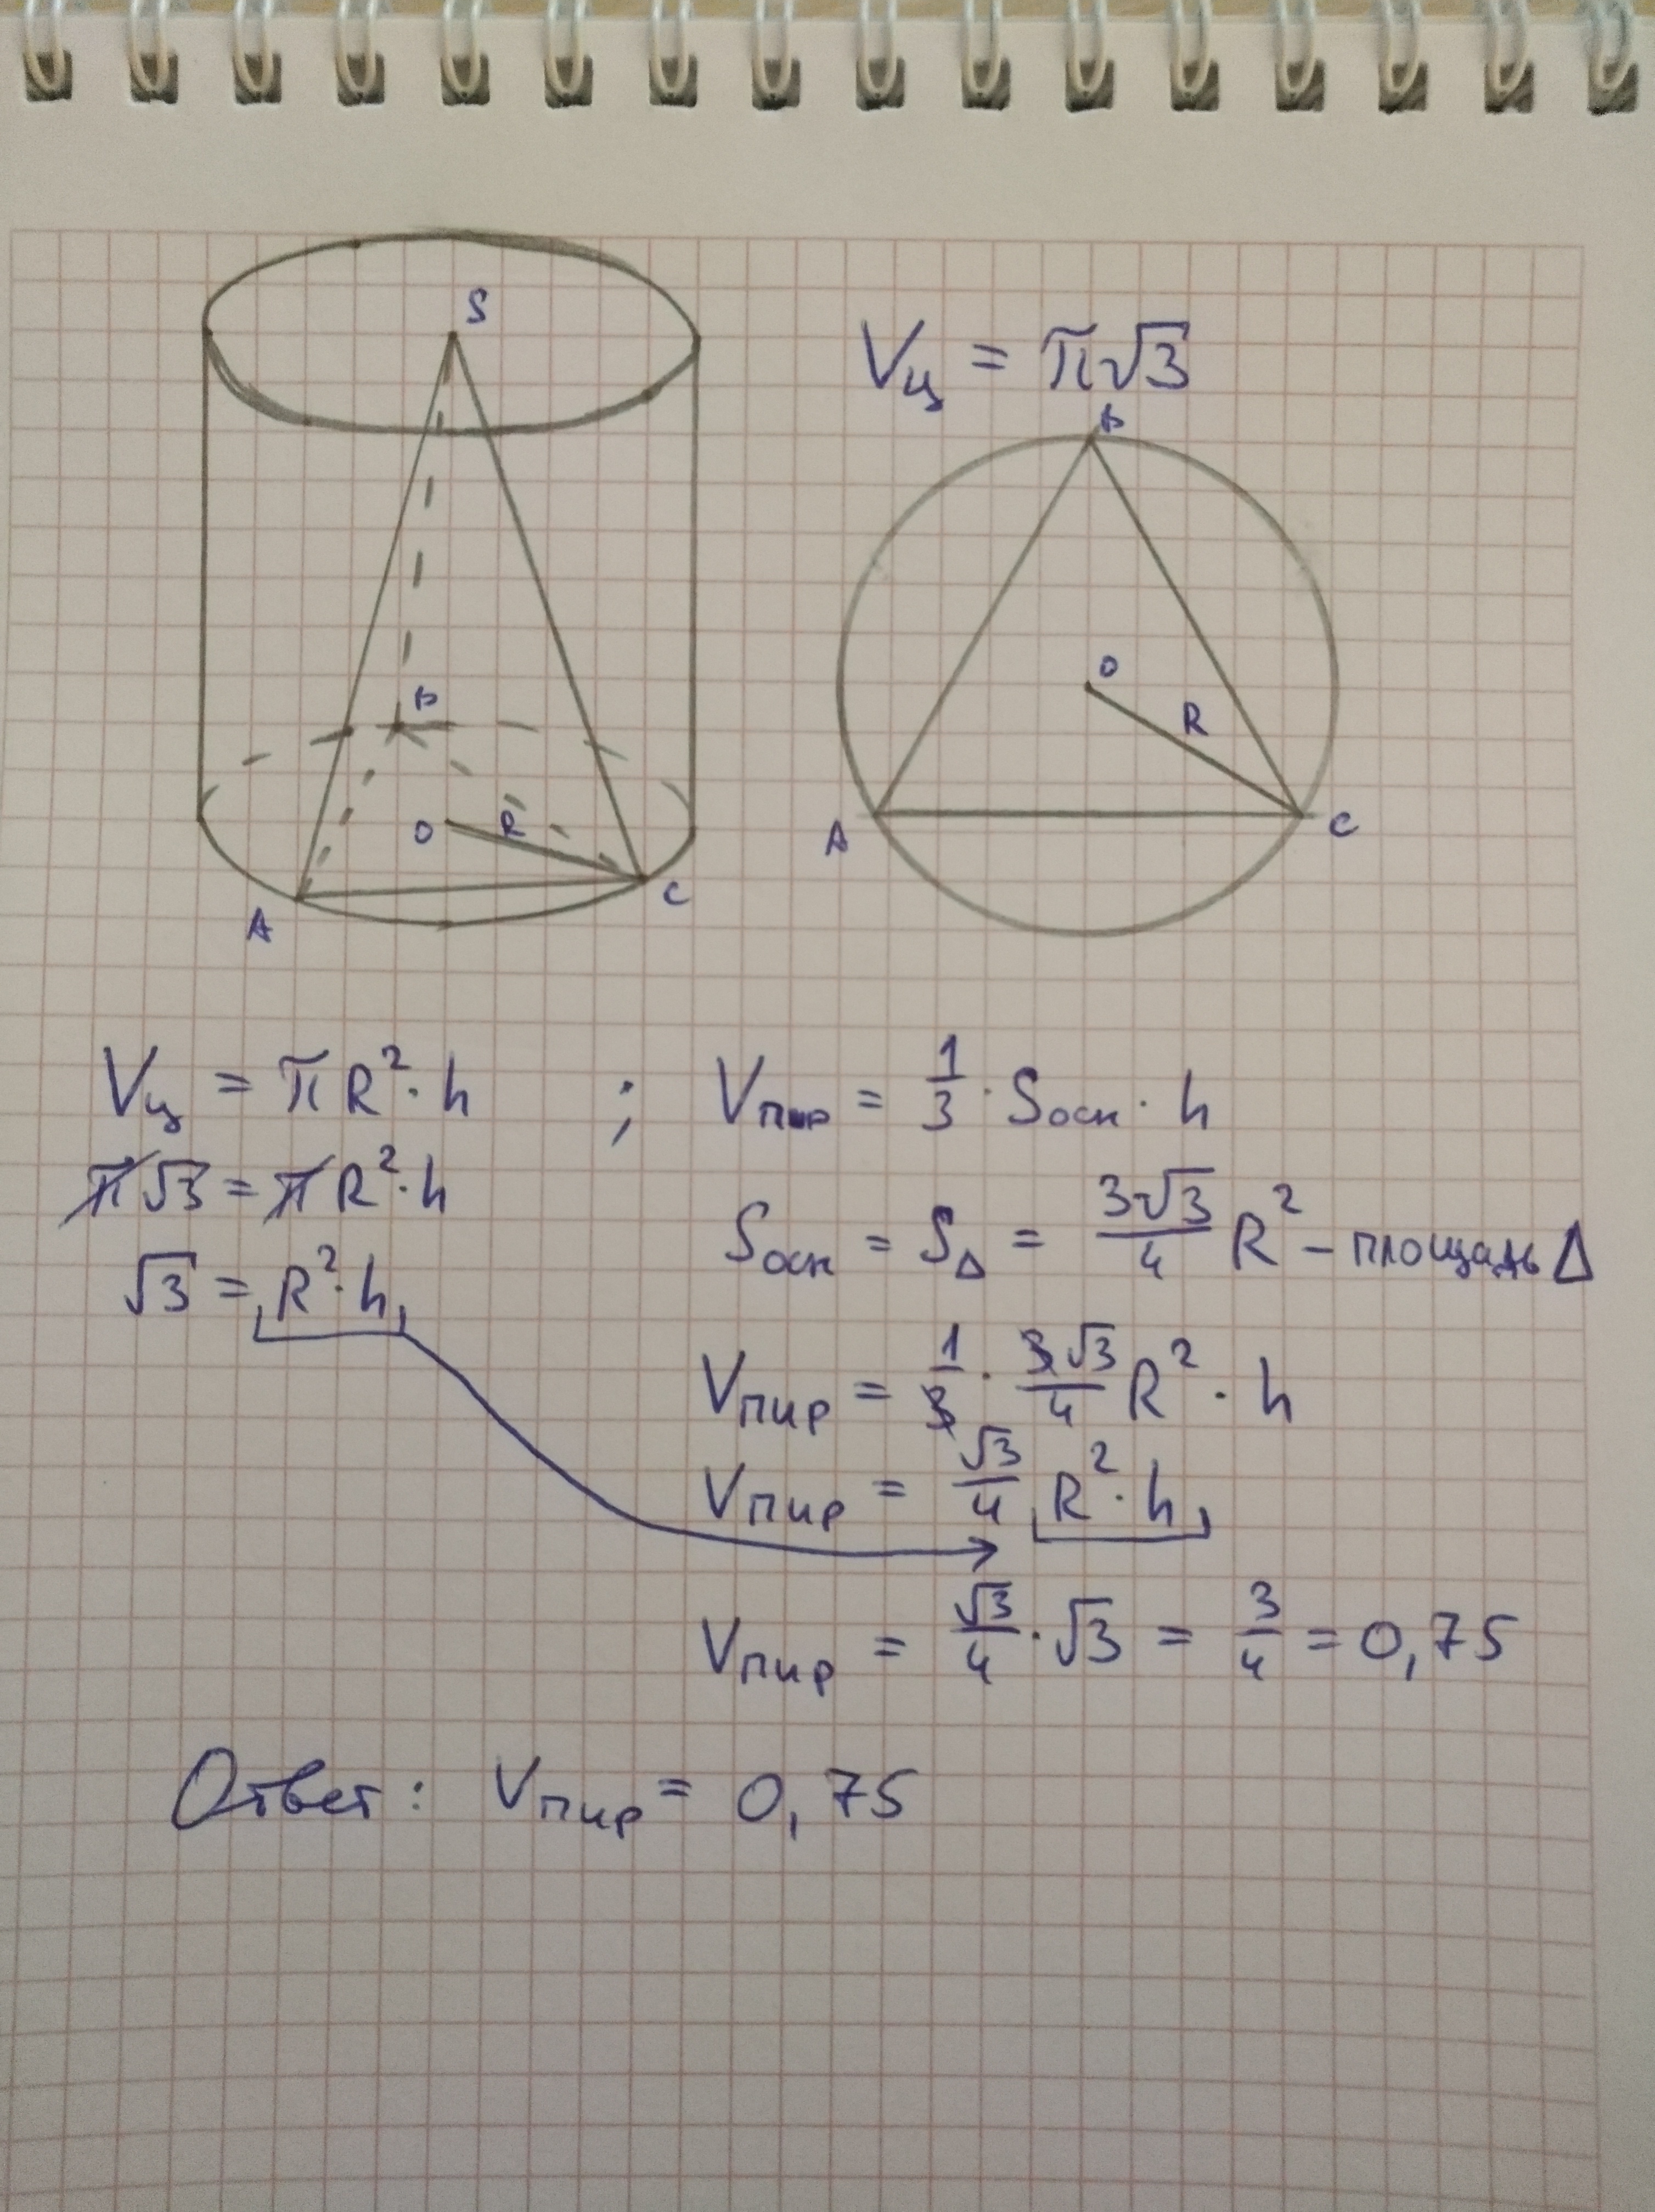 S
Vц = π√3
B
B
O
R
O
R
A
C
A
C
Vц = πR²·h ; Vпир = 1/3 · Sосн · h
π√3 = πR²·h
Sосн = S∆ = 3√3/4 R² – площадь ∆
√3 = R²·h
Vпир = 1/3 · 3√3/4 R² · h
Vпир = √3/4 R²·h
Vпир = √3/4 · √3 = 3/4 = 0,75
Ответ: Vпир = 0,75